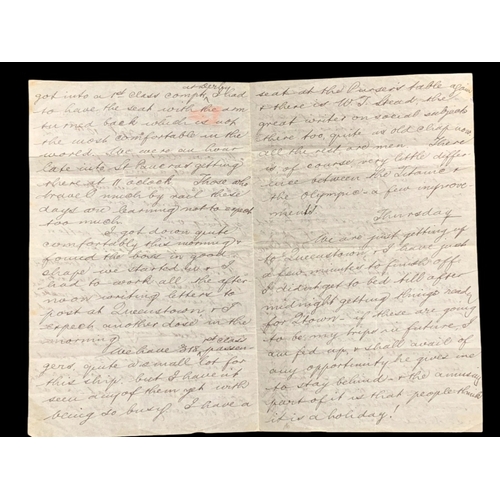 at derby
got into a 1st class compt, I had
to have the seat with the arm
turned back which is not
the most comfortable in the
world. We were an hour
late into St Pancras getting
there at 11 o'clock. Those who
travel much by rail these
days are learning not to expect
too much.
I got down quite
comfortably this morning &
found the boss in good
shape we started by & I
had to work all the after
noon writing letters to
post at Queenstown, & I
expect another dose in the
morning
We have 315 1st class passen
gers, quite a small lot for
this ship. but I haven't
seen any of them yet with
being so busy. I have a
seat at the Pursers table again
& there is W T Stead, the
great writer on social subjects
there too, quite an old chap and
all the rest are men. There
is of course very little differ
ence between the Titanic &
the Olympic a few improve
ments
Thursday
We are just getting up
to Queenstown, & I have just
a few minutes to finish off
I didn't get to bed till after
midnight getting things ready
for Qtown. if these are going
to be my trips in future, I
am fed up, & shall avail of
any opportunity he gives me
to stay behind. & the amusing
part of it is that people think
it is a holiday!